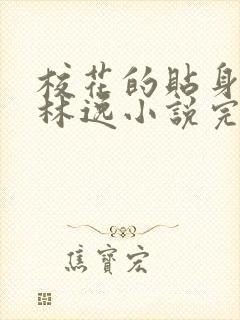 校花的貼身
林逸小說完
焦寶宏